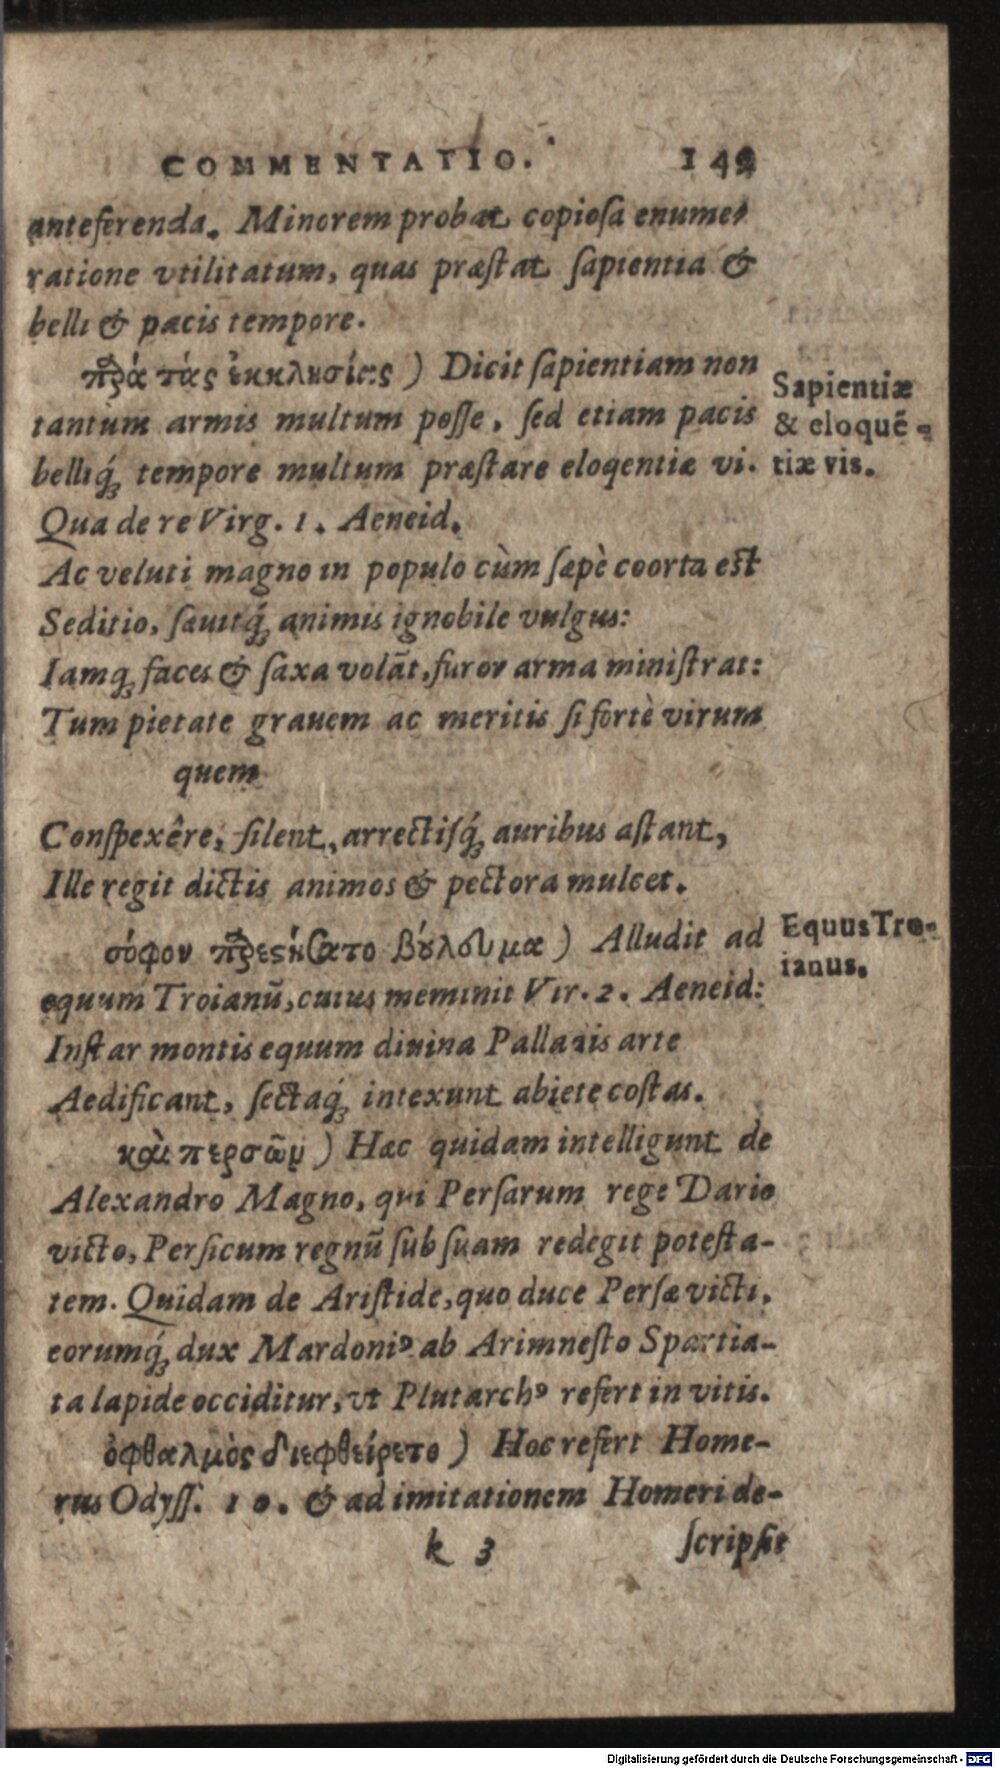 COMMENTATIO. 149
anteferenda. Minorem probat copiosa enume-
ratione vtilitatum, quas præstat sapientia &
belli & pacis tempore.
παρὰ τὰς ἐκκλησίας ) Dicit sapientiam non
tantum armis multum posse, sed etiam pacis
belliq́ꝫ tempore multum præstare eloqentiæ vi.
Sapientiæ
& eloquẽ-
tiæ vis.
Qua de re Virg. 1. Aeneid.
Ac veluti magno in populo cùm sæpè coorta est
Seditio, sæuitq́ꝫ animis ignobile vulgus:
Iamqꝫ faces & saxa volãt, furor arma ministrat:
Tum pietate grauem ac meritis si fortè virum
quem
Conspexêre, silent, arrectisq́ꝫ auribus astant,
Ille regit dictis animos & pectora mulcet.
σόφον βούλουμα ) Alludit ad
Equus Tro-
ianus.
equum Troianũ, cuius meminit Vir. 2. Aeneid:
Instar montis equum diuina Palladis arte
Aedificant, sectaq́ꝫ intexunt abiete costas.
καὶ περσῶν ) Hæc quidam intelligunt de
Alexandro Magno, qui Persarum rege Dario
victo, Persicum regnũ sub suam redegit potesta-
tem. Quidam de Aristide, quo duce Persæ victi,
eorumq́ꝫ dux Mardoniꝰ ab Arimnesto Spartia-
ta lapide occiditur, vt Plutarchꝰ refert in vitis.
ὀφθαλμὸς διεφθείρετο ) Hoc refert Home-
rus Odyss. 10. & ad imitationem Homeri de-
k 3 scripsit
Digitalisierung gefördert durch die Deutsche Forschungsgemeinschaft - DFG